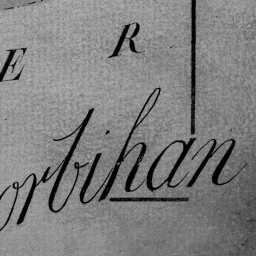 E R
orbihan